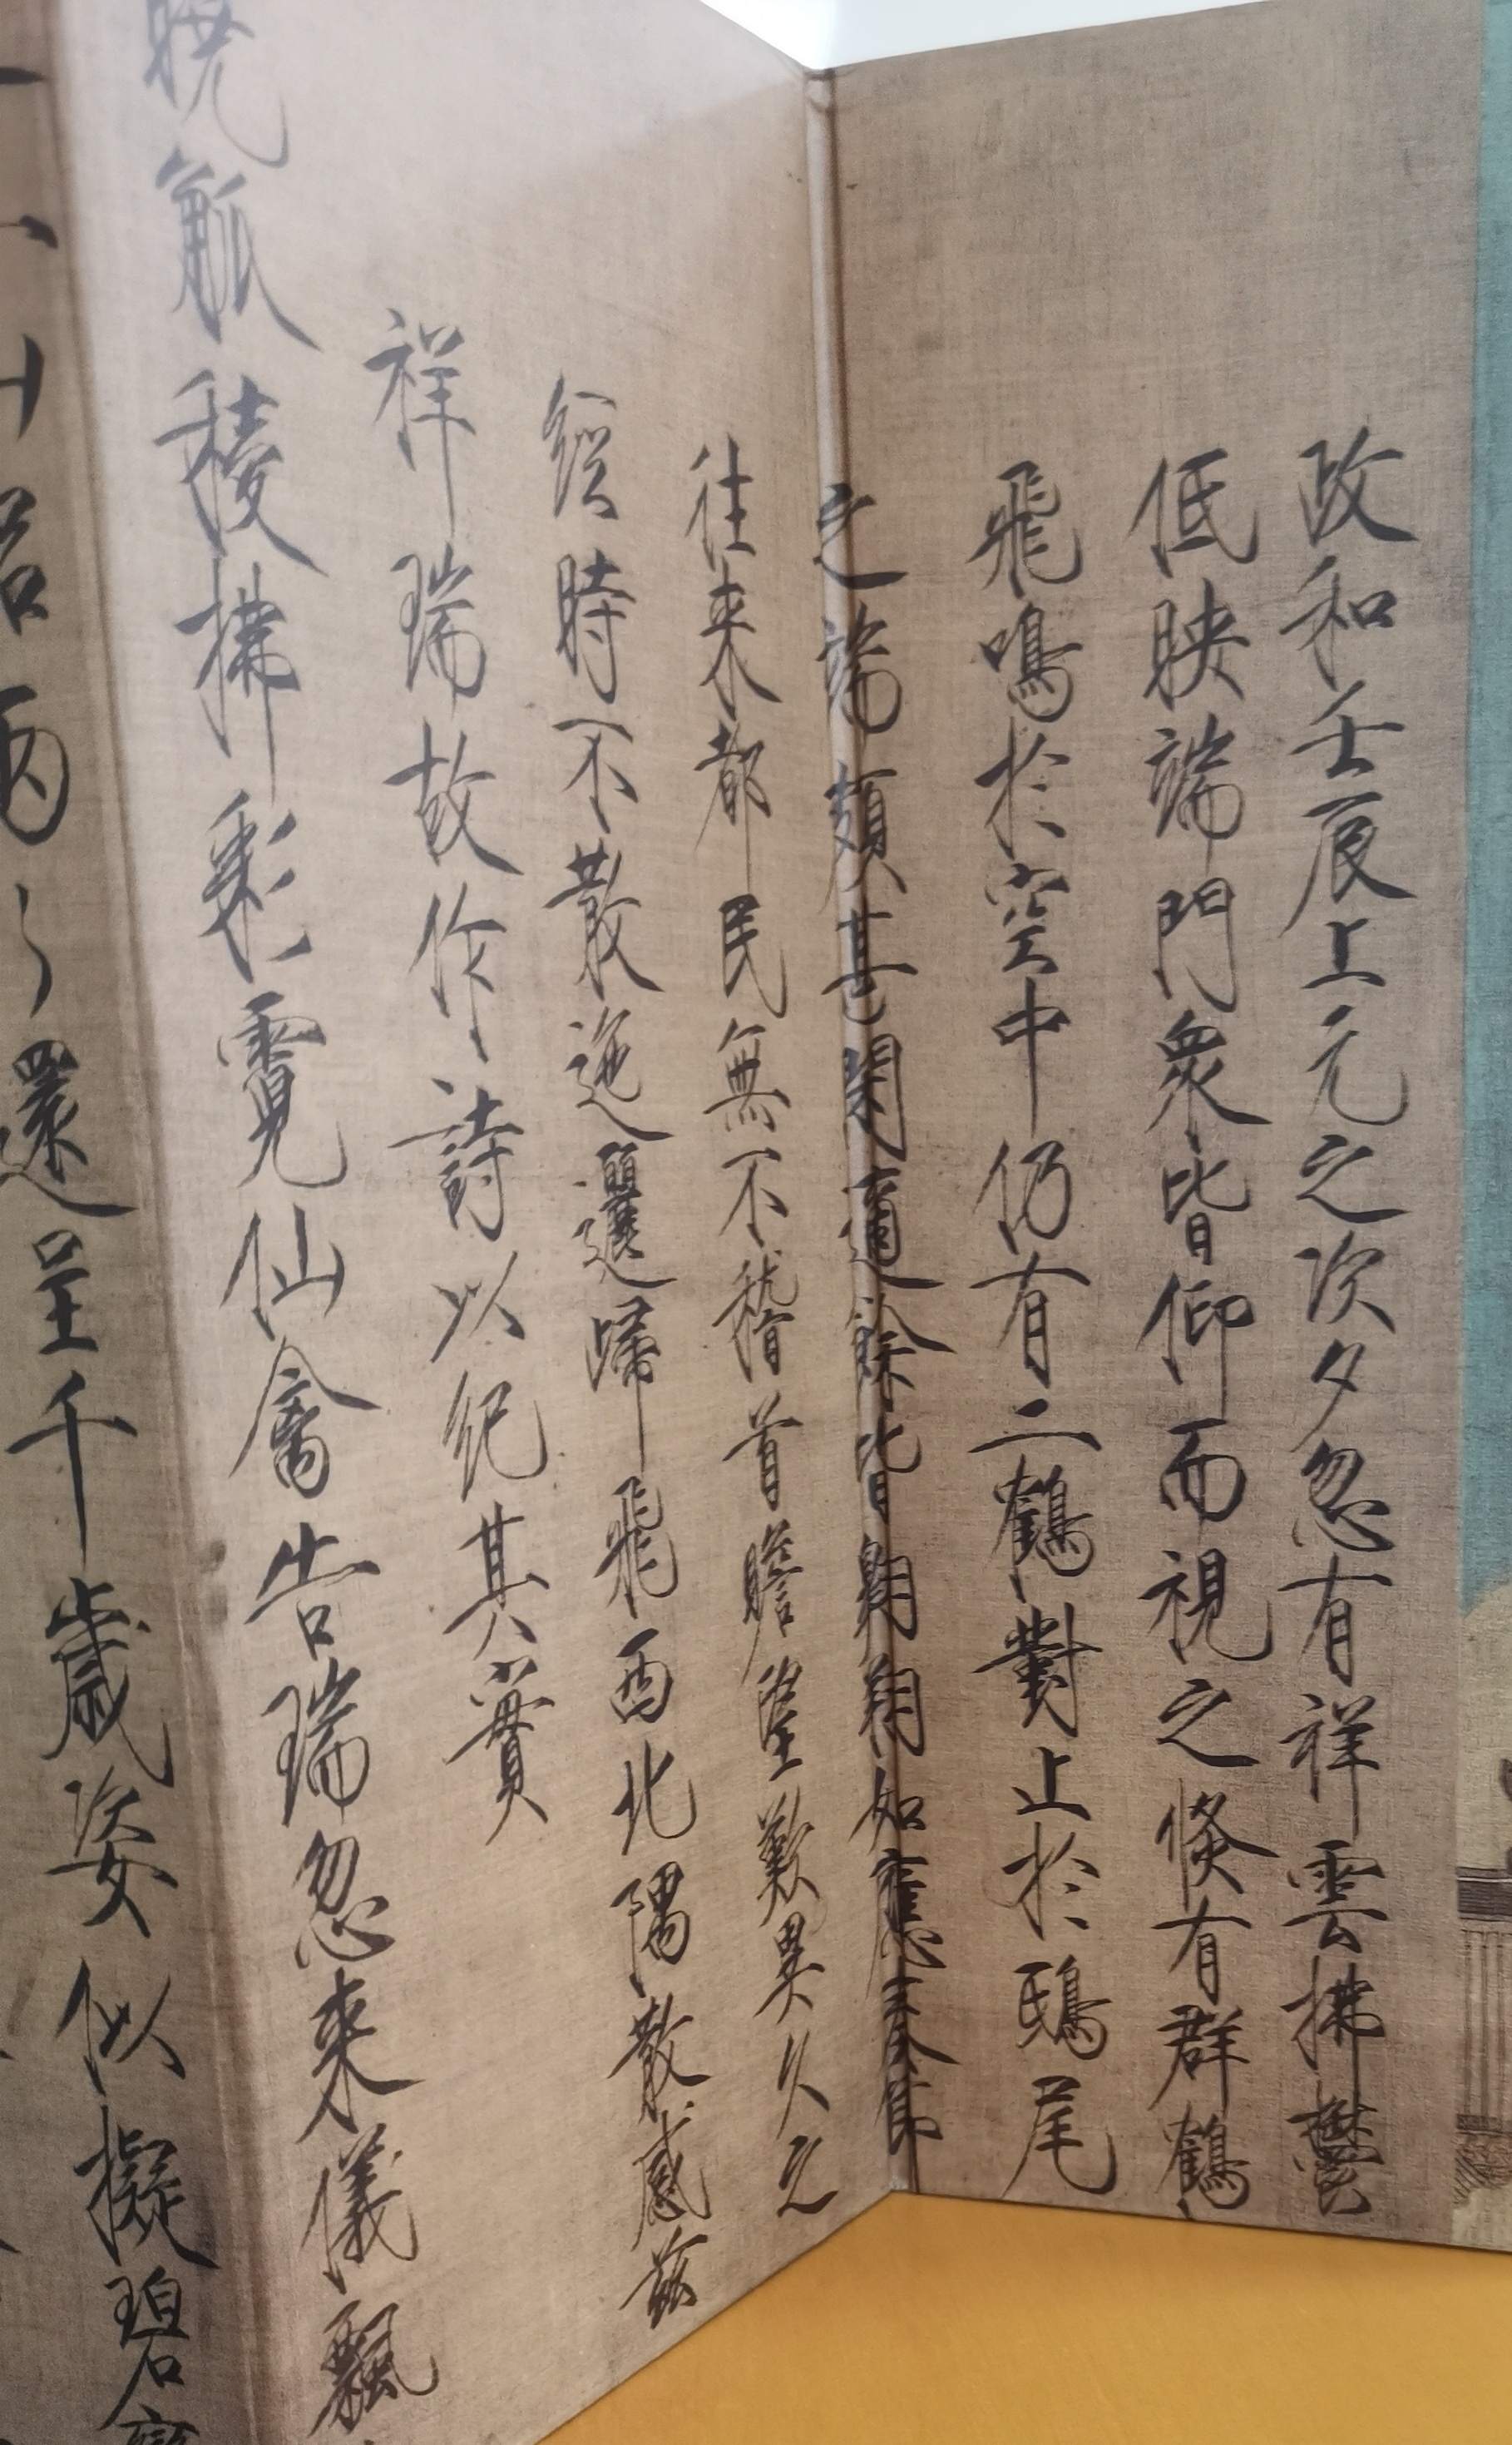 政和壬辰上元之次夕忽有祥雲拂鬱
低映端門衆皆仰而視之倏有群鶴
飛鳴於空中仍有二鶴對止於鴟尾
之端頗甚閑適餘皆翱翔如應奏節
往来都民無不稽首瞻望歎異久之
經時不散迤邐歸飛西北隅散感茲
祥瑞故作詩以紀其實
曉觚稜拂彩霓仙禽告瑞忽来儀飄
山侶兩〻還呈千歲姿似擬碧鸞